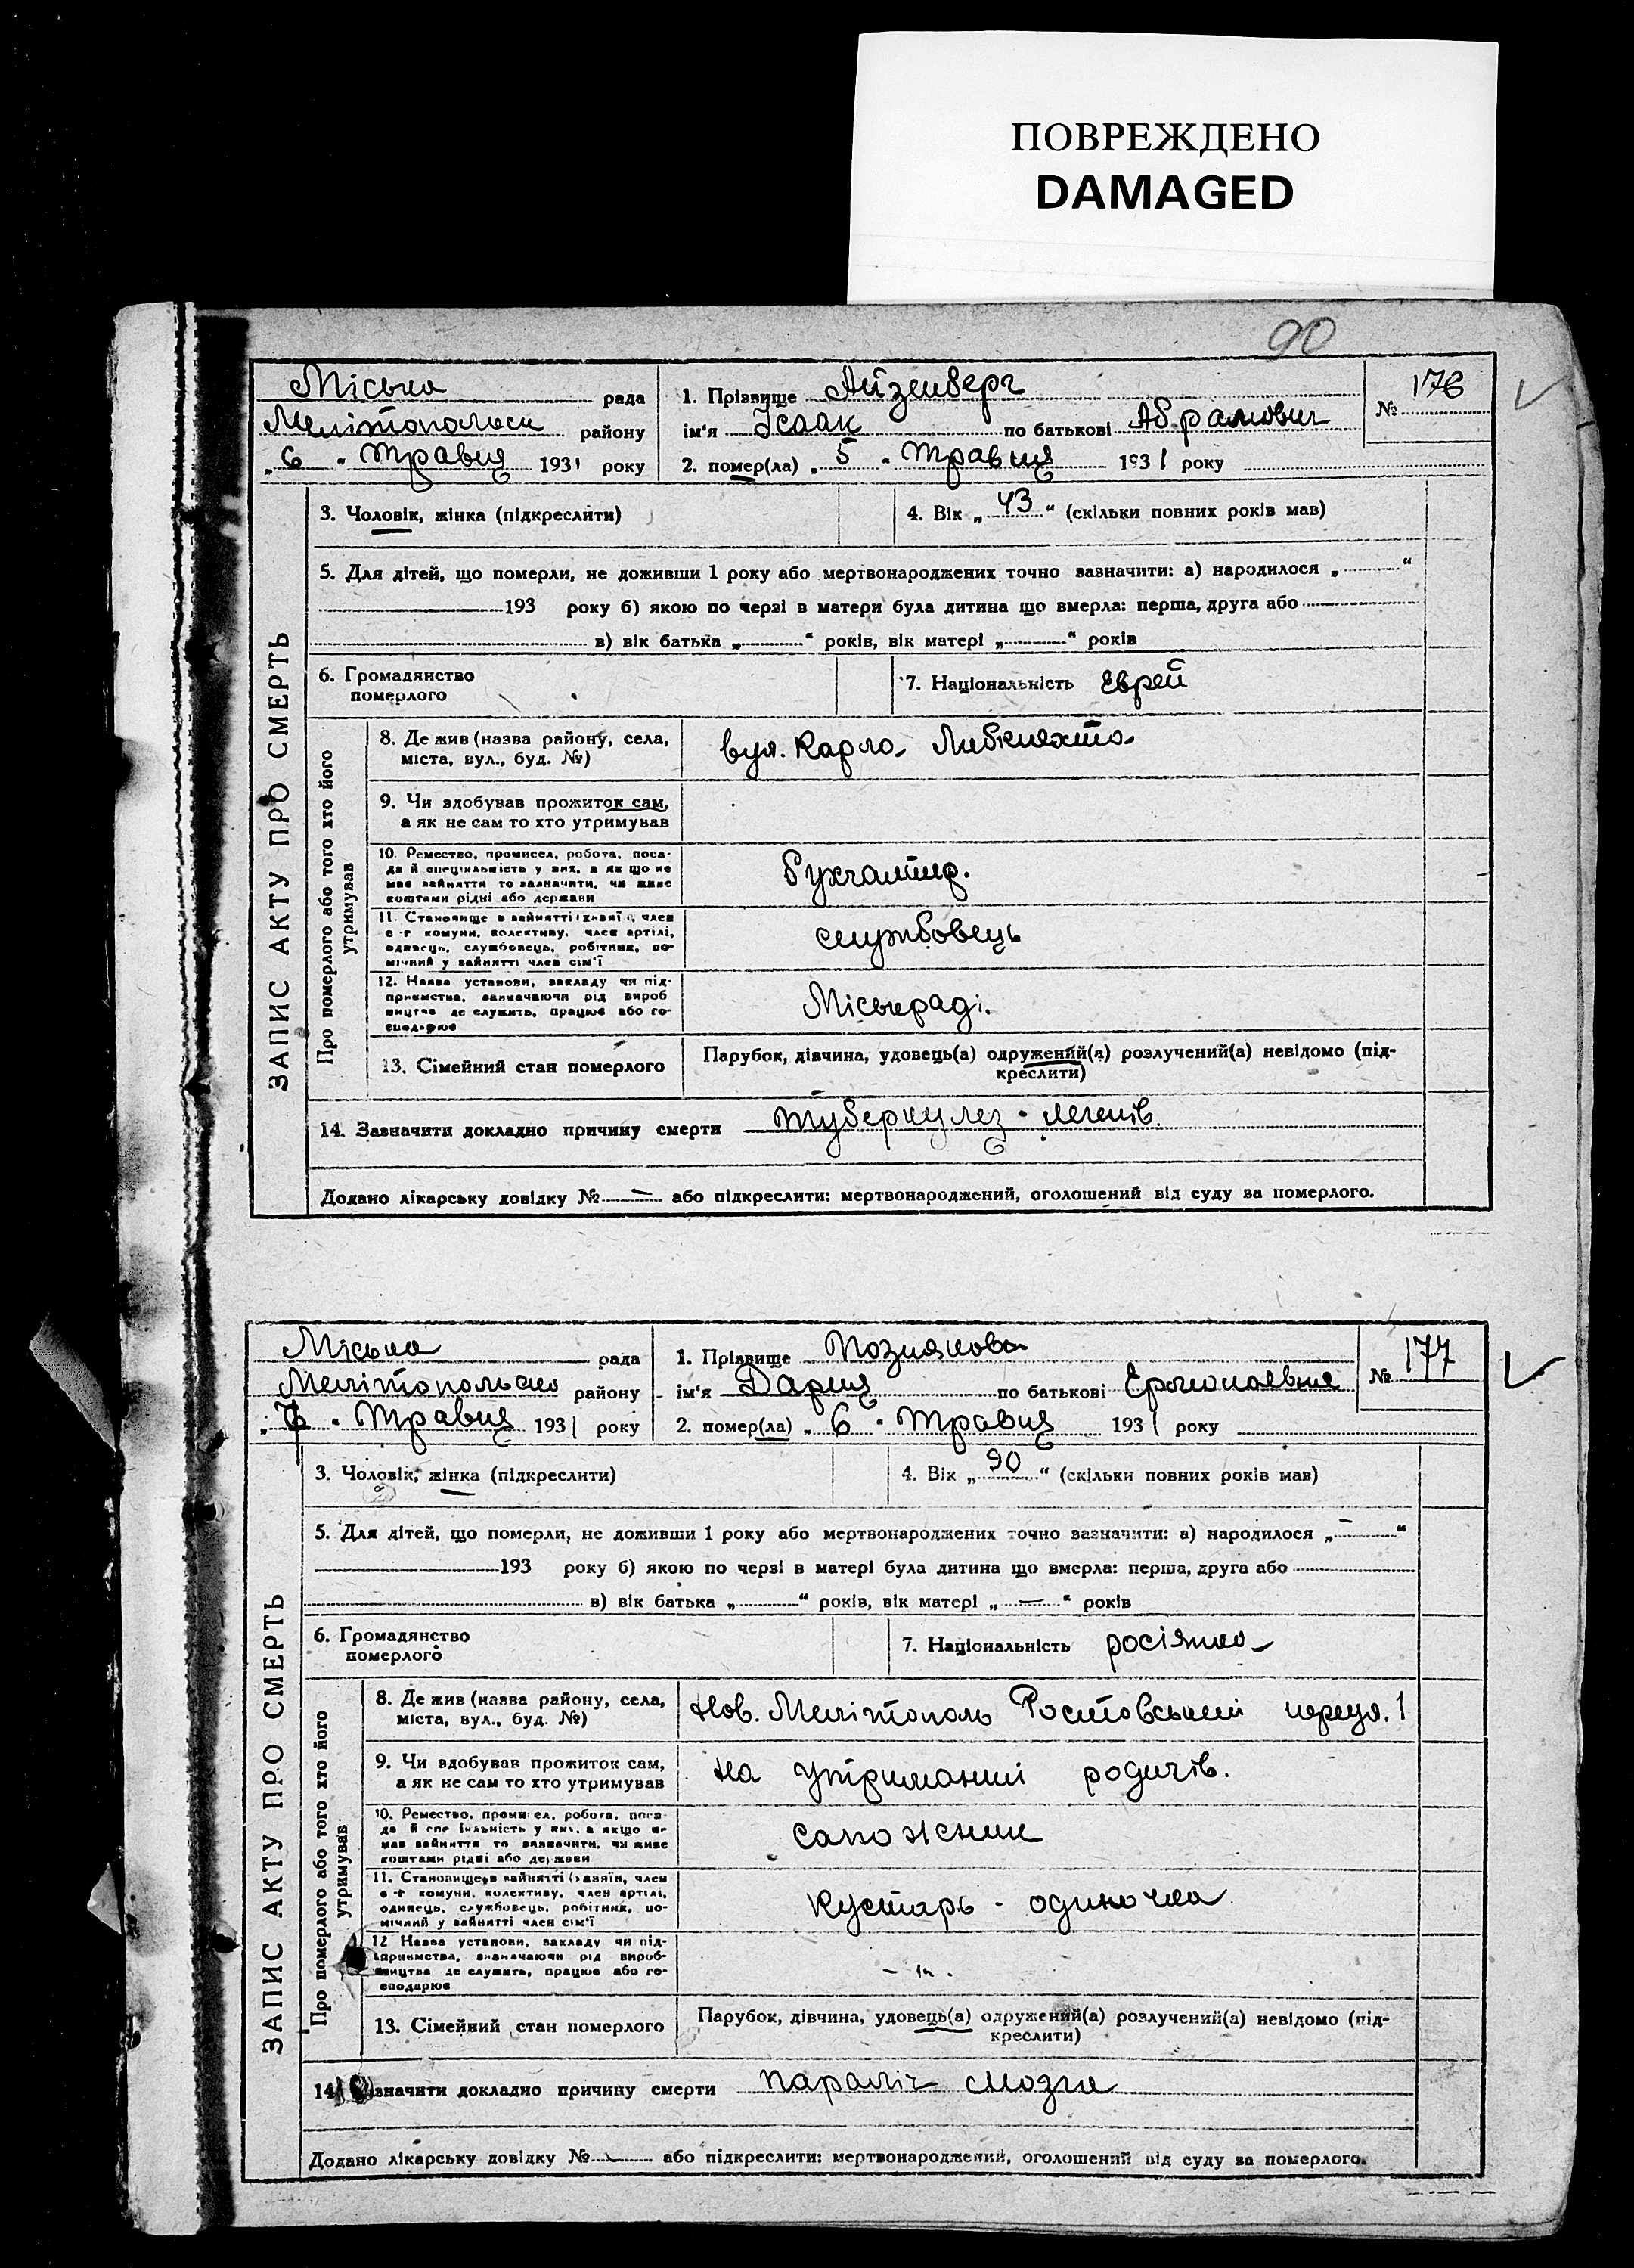 ПОВРЕЖДЕНО
DAMAGED
90
Міська рада
Мелітопольськ району
„6" Травня 1931 року
1. Прізвище Айзенберг
ім'я Ісаак по батькові Абрамович
2. помер(ла) „5" Травня 1931 року
№ 176
ЗАПИС АКТУ ПРО СМЕРТЬ
3. Чоловік, жінка (підкреслити)
4. Вік „43" (скільки повних років мав)
5. Для дітей, що померли, не доживши 1 року або мертвонароджених точно зазначити: а) народилося „ "
193 року б) якою по черзі в матери була дитина що вмерла: перша, друга або
в) вік батька „ " років, вік матері „ " років
6. Громадянство
померлого
7. Національність Еврей
Про померлого або того хто його
утримував
8. Де жив (назва району, села,
міста, вул., буд. №)
вул. Карла Либкнехта
9. Чи здобував прожиток сам,
а як не сам то хто утримував
10. Ремество, промисел, робота, поса-
да й спеціяльність у них, а як що не
має зайняття то зазначити, чи живе
коштами рідні або держави
бухгалтер.
11. Становище в зайнятті (хазяїн, член
с-г комуни, колективу, член артілі,
одинець, службовець, робітник, по-
мічний у зайнятті член сім'ї
службовець
12. Назва установи, закладу чи під-
приємства, зазначаючи рід вироб
ництва де служить, працює або го-
сподарює
Міськраді.
13. Сімейний стан померлого
Парубок, дівчина, удовець(а) одружений(а) розлучений(а) невідомо (під-
креслити)
14. Зазначити докладно причину смерти туберкулез легенів.
Додано лікарську довідку № — або підкреслити: мертвонароджений, оголошений від суду за померлого.
Міська рада
Мелітопольсько району
„7" Травня 1931 року
1. Прізвище Познякова
ім'я Дария по батькові
2. помер(ла) „6" Травня 1931 року
№ 177
ЗАПИС АКТУ ПРО СМЕРТЬ
3. Чоловік, жінка (підкреслити)
4. Вік „90" (скільки повних років мав)
5. Для дітей, що померли, не доживши 1 року або мертвонароджених точно зазначити: а) народилося „—"
193 року б) якою по черзі в матері була дитина що вмерла: перша, друга або
в) вік батька „ " років, вік матері „—" років
6. Громадянство
померлого
7. Національність росіянка
Про померлого або того хто його
утримував
8. Де жив (назва району, села,
міста, вул., буд. №)
Нов. Мелітополь Ростовський переул. 1
9. Чи здобував прожиток сам,
а як не сам то хто утримував
На утриманні родичів.
10. Ремество, промисел, робота, поса-
да й спеціяльність у них, а якщо не
має зайняття то зазначити, чи живе
коштами рідні або держави
сапожник
11. Становище в зайнятті (хазяїн, член
с-г комуни, колективу, член артілі,
одинець, службовець, робітник, по-
мічний у зайнятті член сім'ї
Кустарь - одиночка
12 Назва установи, закладу чи під-
приємства, зазначаючи рід вироб-
ництва де служить, працює або го-
сподарює
- " -
13. Сімейний стан померлого
Парубок, дівчина, удовець(а) одружений(а) розлучений(а) невідомо (під-
креслити)
14. Зазначити докладно причину смерти параліч мозга
Додано лікарську довідку № — або підкреслити: мертвонароджений, оголошений від суду за померлого.